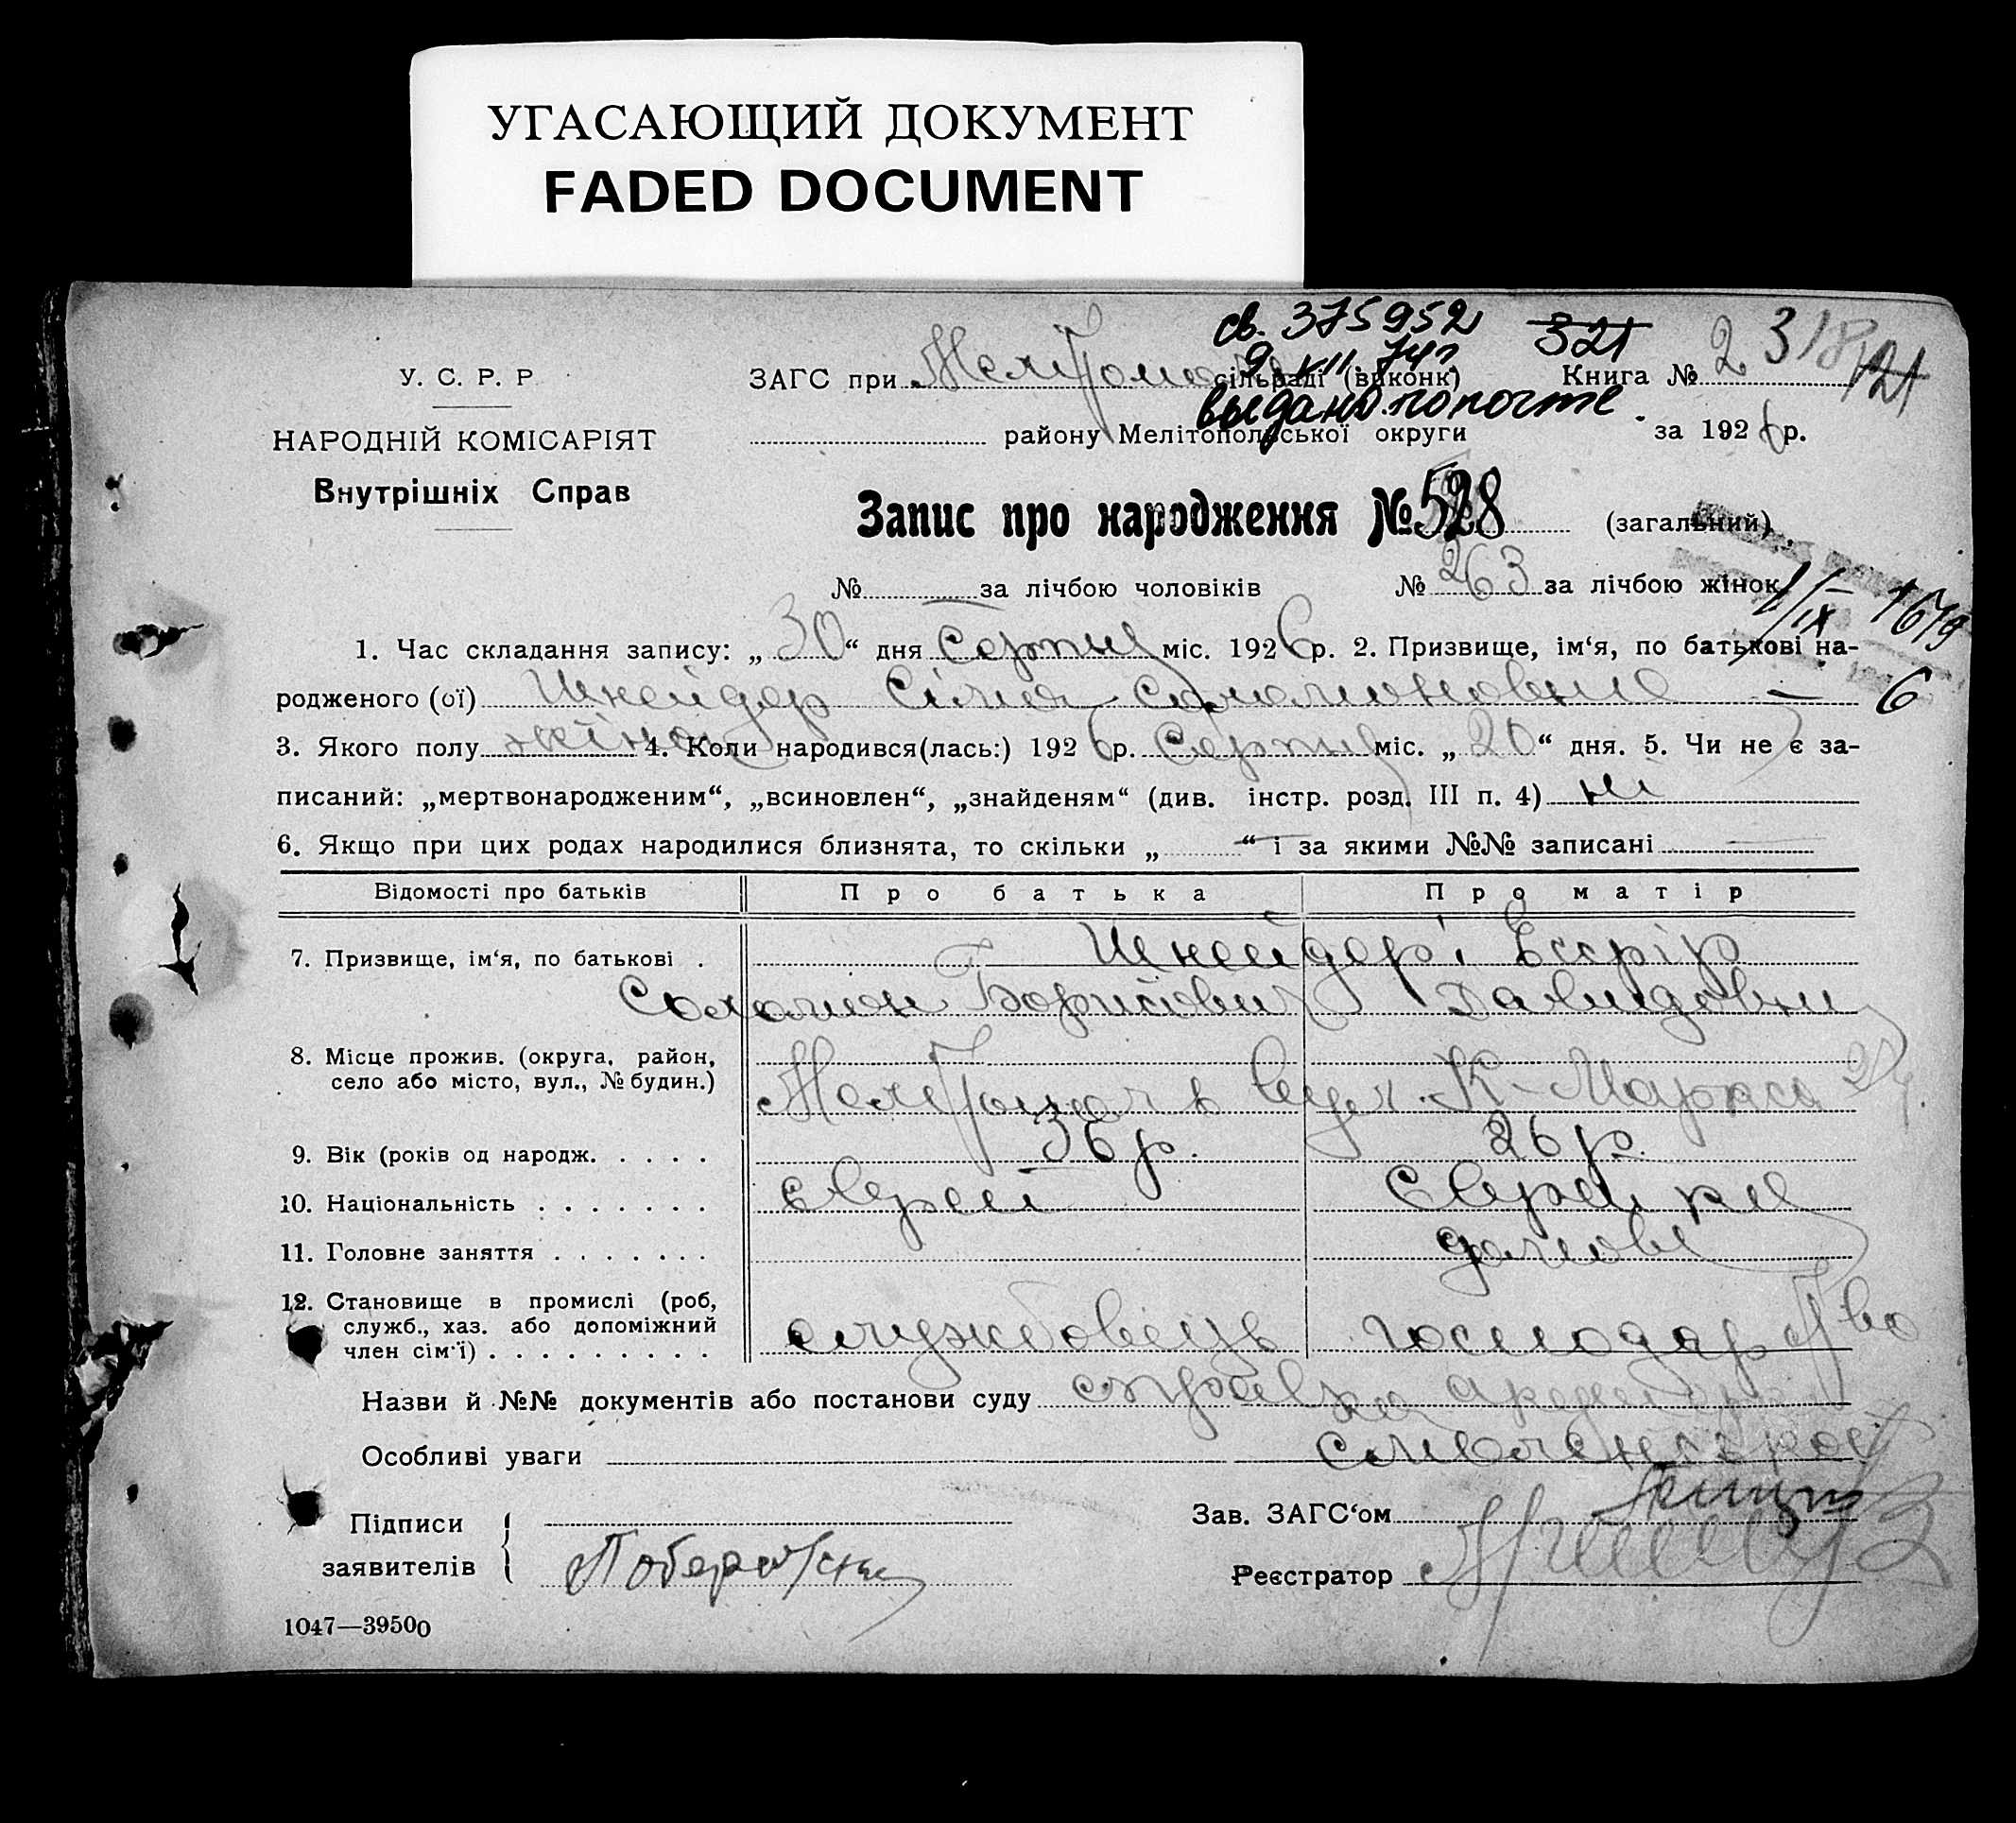 УГАСАЮЩИЙ ДОКУМЕНТ
FADED DOCUMENT
св. 375952
9 XII 74г.
выдано по почте
321
У. С. Р. Р
НАРОДНІЙ КОМІСАРІЯТ
Внутрішніх Справ
ЗАГС при Меліτополь сільраді (виконк) Книга № 2 318 121
району Мелітопольської округи за 1926 р.
Запис про народження № 528 (загальний)
№ — за лічбою чоловіків № 263 за лічбою жінок
1/IX 1679
6
1. Час складання запису: „30“ дня Серпня міс. 1926 р. 2. Призвище, ім‘я, по батькові на-
родженого (ої) Шнейдер Сіма Соломоновна —
3. Якого полу жіноч 4. Коли народився(лась:) 1926 р. Серпня міс. „20“ дня. 5. Чи не є за-
писаний: „мертвонародженим“, „всиновлен“, „знайденям“ (див. інстр. розд. III п. 4) ні
6. Якщо при цих родах народилися близнята, то скільки „—“ і за якими №№ записані —
Відомості про батьків Про батька Про матір
7. Призвище, ім‘я, по батькові . Шнейдер
Соломон Борисович Давидовни
8. Місце прожив. (округа, район,
село або місто, вул., № будин.) Мелітополь вул. К-Маркса
9. Вік (років од народж. . . . . 36 р. 26 р.
10. Національність . . . . . . . Єврей Єврейка
11. Головне заняття . . . . . . . домове
12. Становище в промислі (роб,
служб., хаз. або допоміжний
член сім‘ї) . . . . . . . . . службовець господарство
Назви й №№ документів або постанови суду справка
Особливі уваги
Підписи
заявителів
Зав. ЗАГС‘ом
Реєстратор
1047—39500